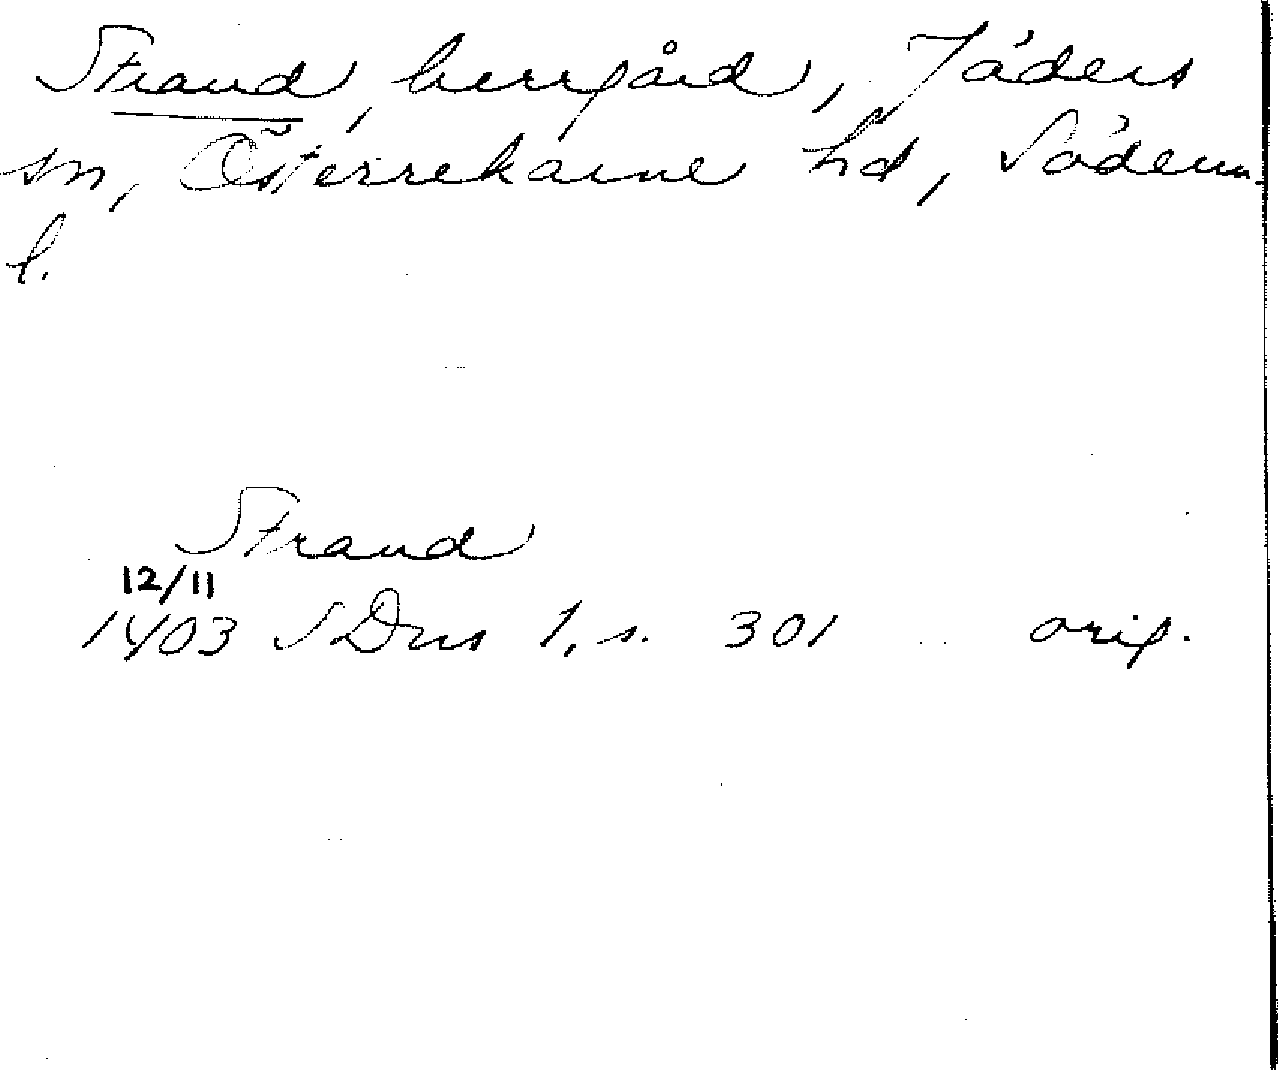 Strand, herrgård, Jäders
sn, Österrekarne hd, Söderm.
l.
Strand
12/11
1403 SDns 1, s. 301 orig.